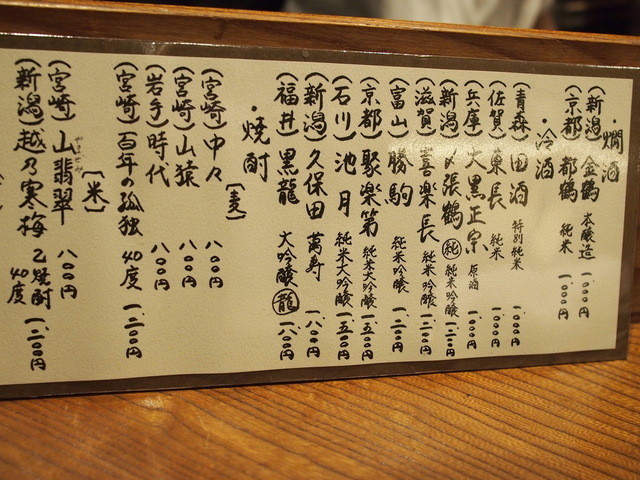 ・燗酒
(新潟) 金鶴 本醸造 一〇〇〇円
(京都) 都鶴 純米 一〇〇〇円
・冷酒
(青森) 田酒 特別純米 一〇〇〇円
(佐賀) 東長 純米 一〇〇〇円
(兵庫) 大黒正宗 原酒 一〇〇〇円
(新潟) 〆張鶴 ㊒純米吟醸 一二〇〇円
(滋賀) 喜楽長 純米吟醸 一二〇〇円
(富山) 勝駒 純米吟醸 一二〇〇円
(京都) 聚楽第 純米大吟醸 一五〇〇円
(石川) 池月 純米大吟醸 一五〇〇円
(新潟) 久保田 萬寿 一八〇〇円
(福井) 黒龍 大吟醸 龍 一八〇〇円
・焼酎
[麦]
(宮崎) 中々 八〇〇円
(宮崎) 山猿 八〇〇円
(岩手) 時代 八〇〇円
(宮崎) 百年の孤独 40度 一二〇〇円
[米]
(宮崎) 山翡翠 やませみ 八〇〇円
(新潟) 越乃寒梅 乙焼酎 40度 一二〇〇円